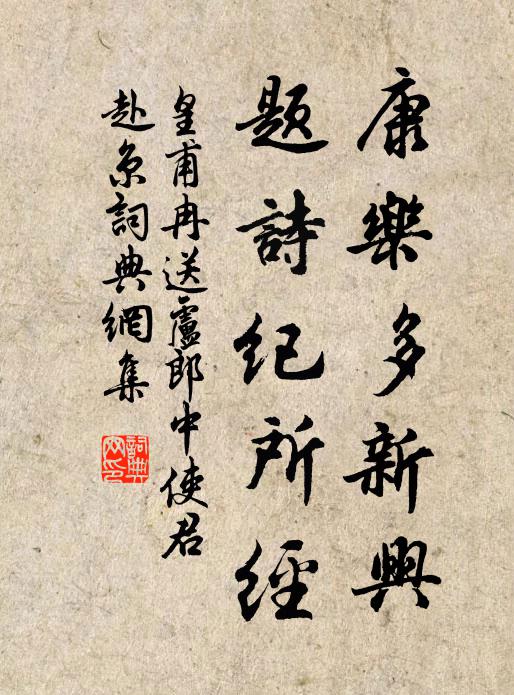 康樂多新興
题詩紀所經
皇甫冉送盧郎中使君
赴京詞典網集
詞典网印